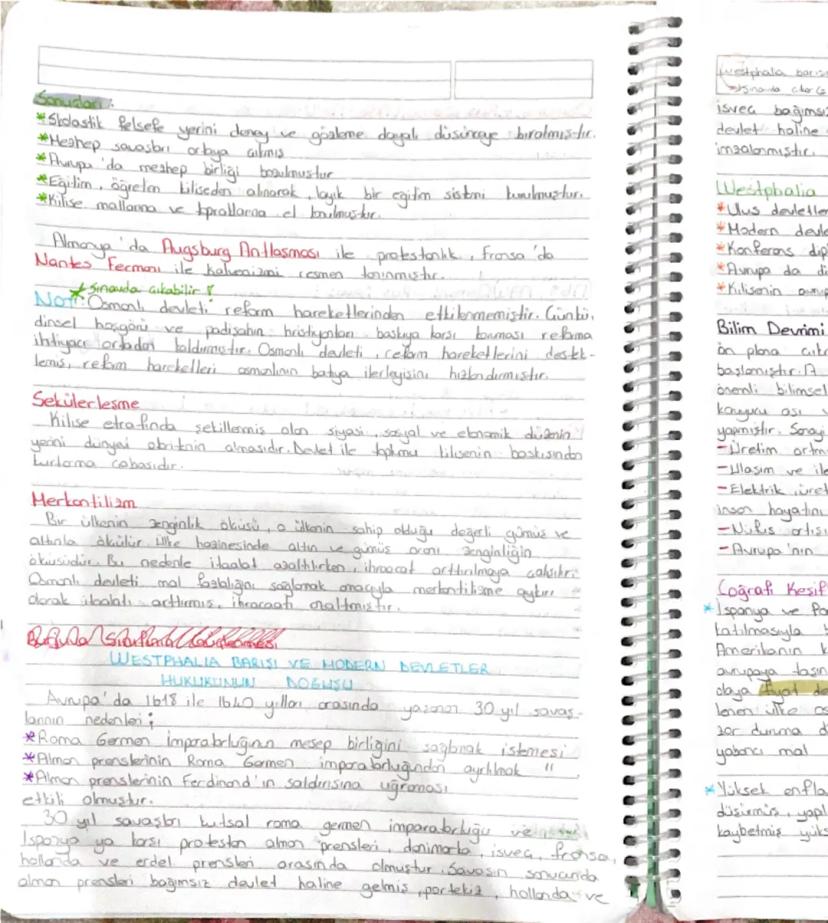 Sonuçları:
*Skolastik felsefe yerini deney ve gözleme dayalı düşünceye bırakmıştır.
*Mezhep savaşları ortaya çıkmış
*Avrupa'da mezhep birliği bozulmuştur
*Eğitim, öğretim kiliseden alınarak, layik bir eğitim sistemi kurulmuştur.
*Kilise mallarına ve topraklarına el konulmuştur.
Almanya'da Augsburg Antlaşması ile protestanlık, Fransa'da
Nantes Fermanı ile kalvenizmi resmen tanınmıştır.
*sınavda çıkabilir!
Not: Osmanlı devleti reform hareketlerinden etkilenmemiştir. Çünkü,
dinsel hoşgörü ve padişahın hristiyanları baskıya karşı koruması reforma
ihtiyacı ortadan kaldırmıştır. Osmanlı devleti, reform hareketlerini destek-
lemiş, reform hareketleri osmanlının batıya ilerleyişini hızlandırmıştır.
Sekülerleşme
Kilise etrafında şekillenmiş olan siyasi, sosyal ve ekonomik düzenin
yerini dünyevi otoritenin almasıdır. Devlet ile toplumu kilisenin baskısından
kurtarma çabasıdır.
Merkantilizm
Bir ülkenin zenginlik ölçüsü, o ülkenin sahip olduğu değerli gümüş ve
altınla ölçülür. Ülke hazinesinde altın ve gümüş oranı zenginliğin
ölçüsüdür. Bu nedenle ithalat azaltılırken, ihracat arttırılmaya çalışılır.
Osmanlı devleti mal fazlalığını sağlamak amacıyla merkantilizme aykırı
olarak ithalatı arttırmış, ihracaatı azaltmıştır.
WESTPHALIA BARIŞI VE MODERN DEVLETLER
HUKUKUNUN DOĞUŞU
Avrupa'da 1618 ile 1640 yılları arasında yaşanan 30 yıl savaş-
larının nedenleri;
*Roma Germen imparatorluğunun mesep birliğini sağlamak istemesi
*Alman prenslerinin Roma Germen imparatorluğundan ayrılmak "
*Alman prenslerinin Ferdinand'ın saldırısına uğraması
etkili olmuştur.
30 yıl savaşları kutsal roma germen imparatorluğu ve
İspanya ya karşı protestan alman prensleri, danimarka, isveç, fransa,
hollanda ve erdel prensleri arasında olmuştur. Savaşın sonucunda
alman prensleri bağımsız devlet haline gelmiş, portekiz, hollanda ve
Westphalia barışı
isveç bağımsız
devlet haline
imzalanmıştır.
Westphalia
*Ulus devletler
*Modern devle
*Konferans dip
*Avrupa da di
*Kilisenin avrup
Bilim Devrimi
ön plana çık
başlamıştır. A
önemli bilimsel
kavuyu aşı v
yapmıştır. Sanayi
-Üretim artm
-Ulaşım ve ile
-Elektrik, üret
insan hayatını
-Nüfus artışı
-Avrupa'nın
Coğrafi Keşif
*İspanya ve Po
katılmasıyla
Amerikanın k
avrupaya taşın
olaya fiyat de
lenen ülke os
zor duruma d
yabancı mal
*Yüksek enfla
düşürmüş, yapı
kaybetmiş yüks